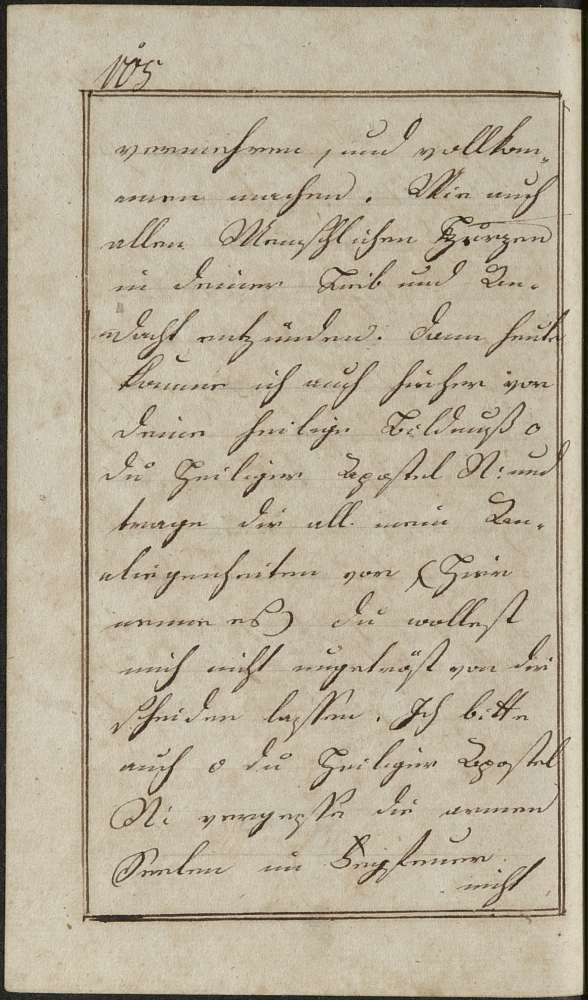 105
vermehren, und vollkom-
men machen. Wie auch
allen Menschlichen Hertzen
in deiner Lieb und An-
dacht entzünden. Dann heute
komme ich auch hieher vor
deine heilige Bildnuß o
du Heiliger Apostel N: und
trage dir all mein An-
liegenheiten vor (Hier
nenne es) du wollest
mich nicht ungetröst von dir
scheiden lassen. Ich bitte
auch o du Heiliger Apostel
N: vergesse die armen
Seelen im Fegfeuer
nicht